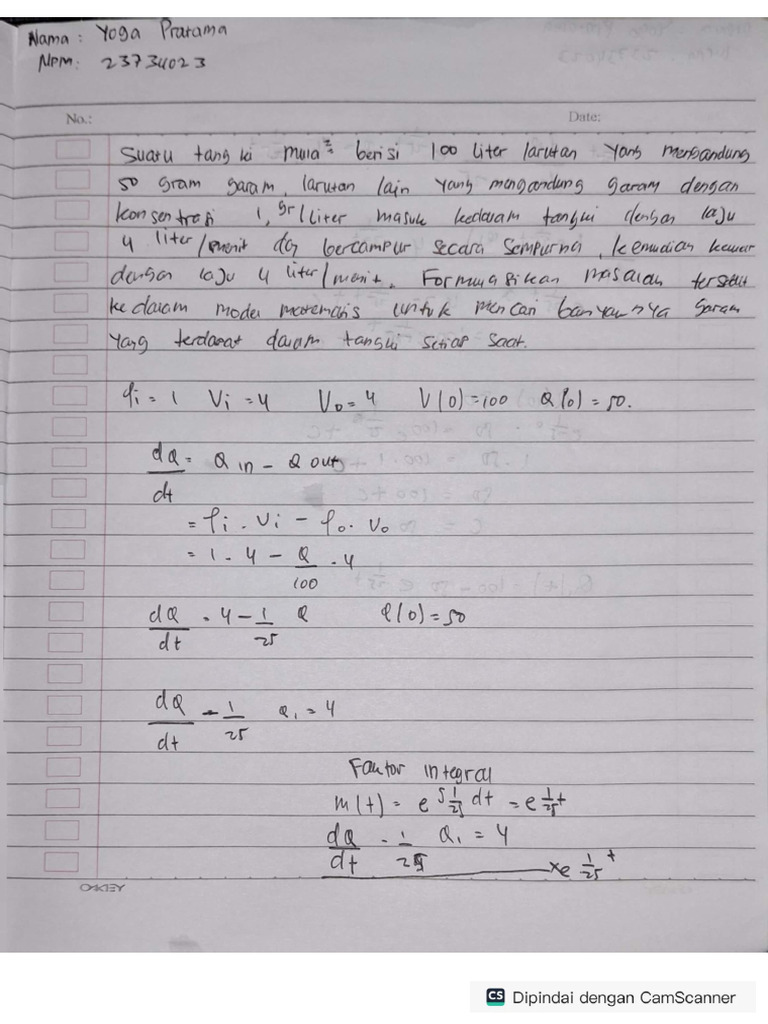 Nama : Yoga Pratama
NPM : 23734023
No.: Date:
Suatu tangki mula² berisi 100 liter larutan yang mengandung
50 gram garam, larutan lain yang mengandung garam dengan
konsentrasi 1, gr/liter masuk kedalam tangki dengan laju
4 liter/menit dg bercampur secara sempurna, kemudian keluar
dengan laju 4 liter/menit. Formulasikan masalah tersebut
kedalam model matematis untuk mencari banyaknya garam
yang terdapat dalam tangki setiap saat.
ρi = 1 Vi = 4 Vo = 4 V(0) = 100 Q(0) = 50.
dQ/dt = Q in - Q out
= ρi . Vi - ρo . Vo
= 1 - 4 - Q/100 . 4
dQ/dt = 4 - 1/25 Q Q(0) = 50
dQ/dt - 1/25 Q1 = 4
Faktor integral
m(t) = e^∫1/25 dt = e^1/25 t
dQ/dt - 1/25 Q1 = 4
x e^1/25 t
OAKEY
CS Dipindai dengan CamScanner